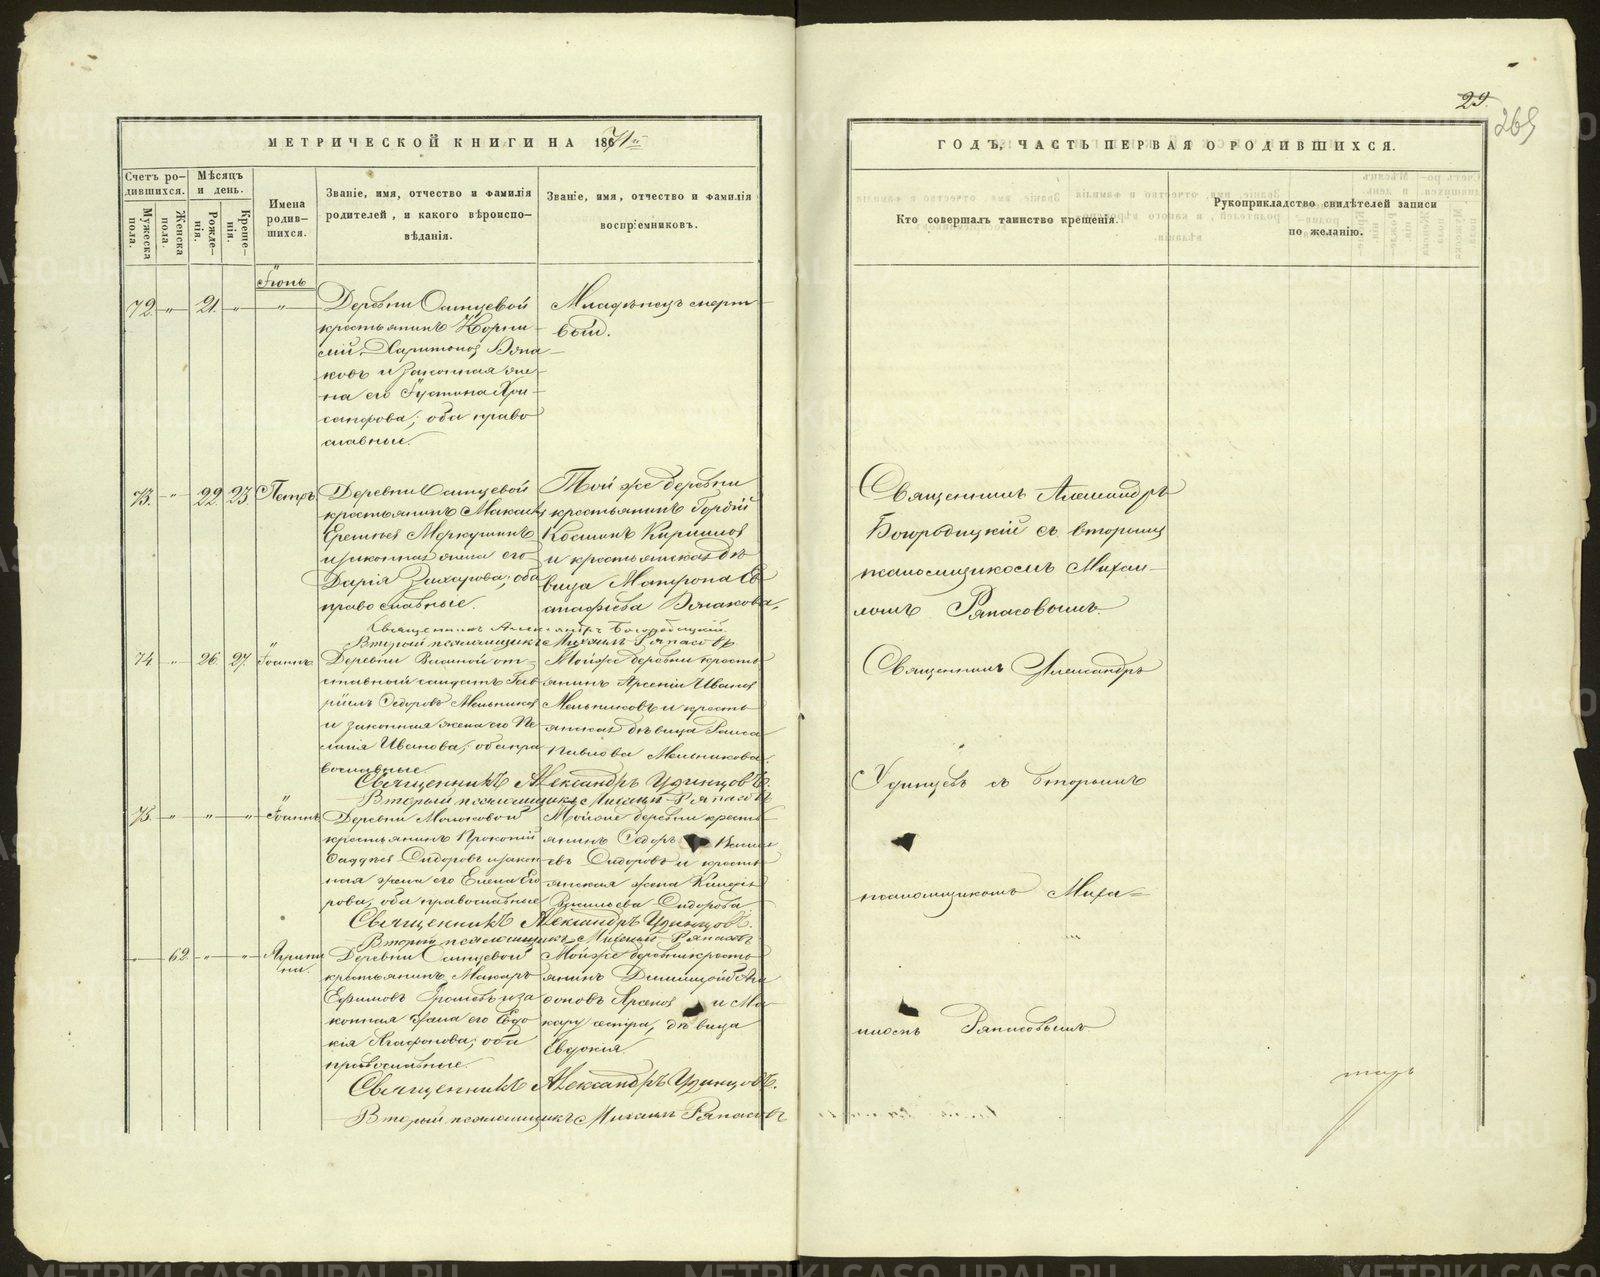 МЕТРИЧЕСКОЙ КНИГИ НА 1871й
Счетъ ро-
дившихся.
Мужеска пола.
Женска пола.
Мѣсяцъ
и день.
Рожде-
нія.
Креще-
нія.
Имена
родив-
шихся.
Званіе, имя, отчество и фамилія
родителей, и какого вѣроиспо-
вѣданія.
Званіе, имя, отчество и фамилія
воспріемниковъ.
Іюнь
72. " 21. " "
Деревни
крестьянинъ Корни-
лій Харитоновъ
ковъ и законная же-
на его Іустина Хри-
санфова; оба право
славные.
Младѣнецъ мерт-
вый.
73. " 22. 23. Петръ
Деревни
крестьянинъ Максимъ
Меркушинъ
и законная жена его
Дарія Захарова; оба
православные.
Той же деревни
крестьянинъ Гордій
Косминъ Кириллов
и крестьянская дѣ
вица Матрона Ев
Священникъ Александръ Богородицкій.
Второй псаломщикъ Михаилъ Ряпасовъ
74 " 26. 27. Іоаннъ
Деревни от-
ставной солдатъ Гав
ріилъ Сидоровъ Мельников
и законная жена его Пе
лагія Иванова; оба пра
вославные.
Той же деревни кресть
янинъ Арсеній Иванов
Мельниковъ и кресть
янская дѣвица Раиса
Павлова Мельникова.
Священникъ Александръ Удинцовъ.
Второй псаломщикъ Михаилъ Ряпасовъ
75. " " " Іоаннъ
Деревни
крестьянинъ Прокопій
Фаддѣев Сидоровъ и закон
ная жена его Елена Его
рова; оба православные
Той же деревни кресть
янинъ Ѳедоръ
евъ Сидоровъ и кресть
янская жена
Васильева Сидорова
Священникъ Александръ Удинцовъ.
Второй псаломщикъ Михаилъ Ряпасовъ
" 62 " " Агрипи
на.
Деревни
крестьянинъ Макаръ
Ефимовъ и за
конная жена его Евдо
кія Агафонова; оба
православные.
Той же деревни кресть
янинъ
и Ма
кару сестра, дѣвица
Евдокія.
Священникъ Александръ Удинцовъ.
Второй псаломщикъ Михаилъ Ряпасовъ
29.
265
ГОДЪ, ЧАСТЬ ПЕРВАЯ О РОДИВШИХСЯ.
Кто совершалъ таинство крещенія.
Рукоприкладство свидѣтелей записи
по желанію.
Священникъ Александръ
Богородицкій съ вторымъ
псаломщикомъ Михаи-
ломъ Ряпасовымъ.
Священникъ Александръ
Удинцевъ съ вторымъ
псаломщикомъ Миха-
иломъ Ряпасовымъ